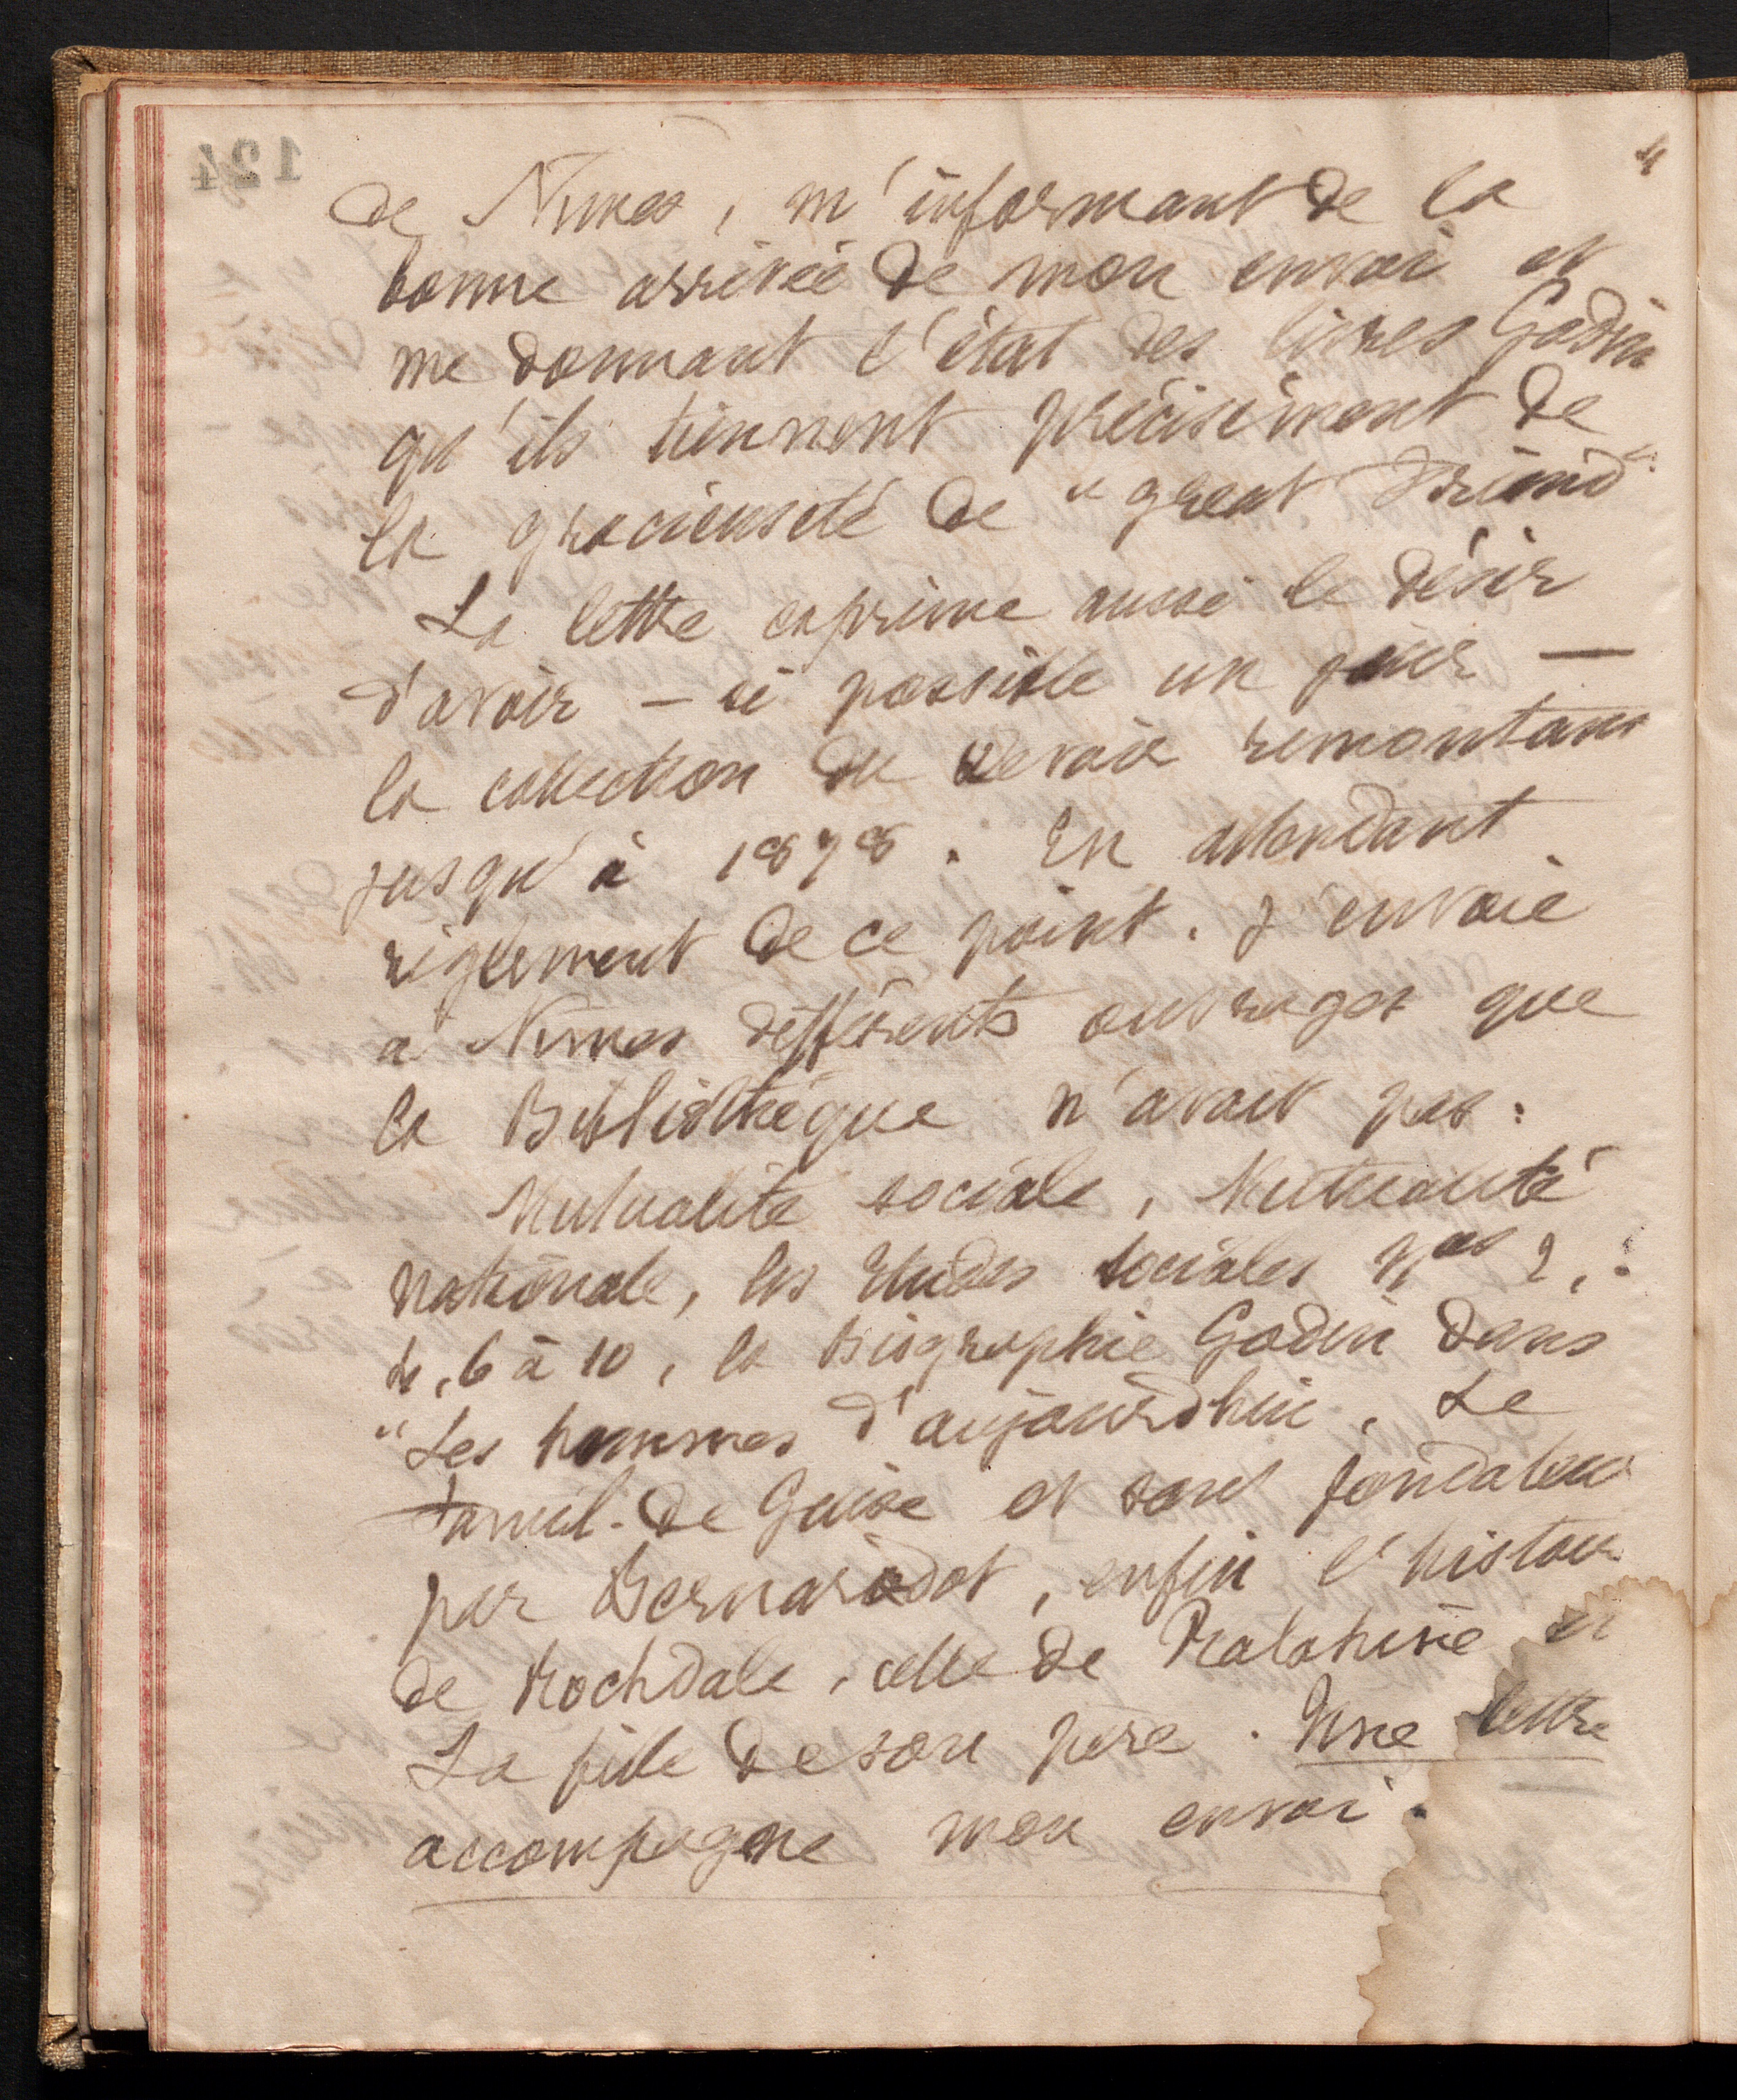 de Nimes, m'informant de la
bonne arrivée de mon envoi et
me donnant l'état des livres Godin
qu'ils tiennent précisément de
la gracieuseté de "great Friend".
La lettre exprime aussi le désir
d'avoir — si possible un jour —
la collection du Devoir remontant
jusqu'à 1878. En attendant
règlement de ce point. J'envoie
à Nimes différents ouvrages que
la Bibliothèque n'avait pas :
Mutualité sociale, Mutualité
nationale, les Etudes sociales Nos 2,
4, 6 à 10, la Biographie Godin dans
"Les hommes d'aujourd'hui, Le
Famil. de Guise et son fondateur
par Bernardot, enfin l'histoire
de Rochdale, celle de Ralahine et
La fille de son père. Une lettre
accompagne mon envoi.
124